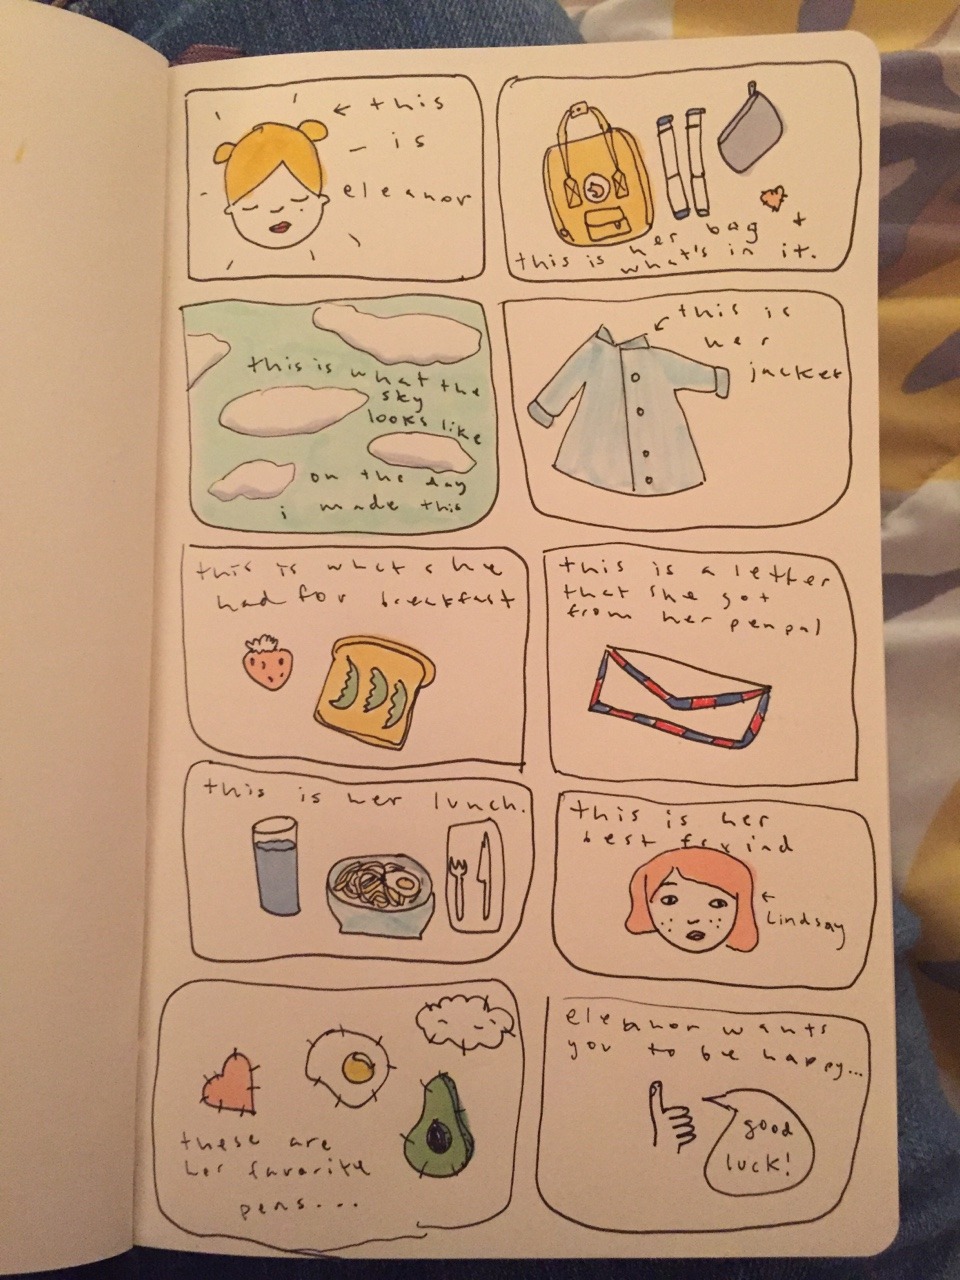 ← this
– is
eleanor
this is her bag +
what's in it.
this is what the
sky
looks like
on the day
i made this
this is
her
jacket
this is what she
had for breakfast
this is a letter
that she got
from her penpal
this is her lunch.
this is her
best friend
Lindsay
these are
her favorite
pens....
eleanor wants
you to be happy...
good
luck!